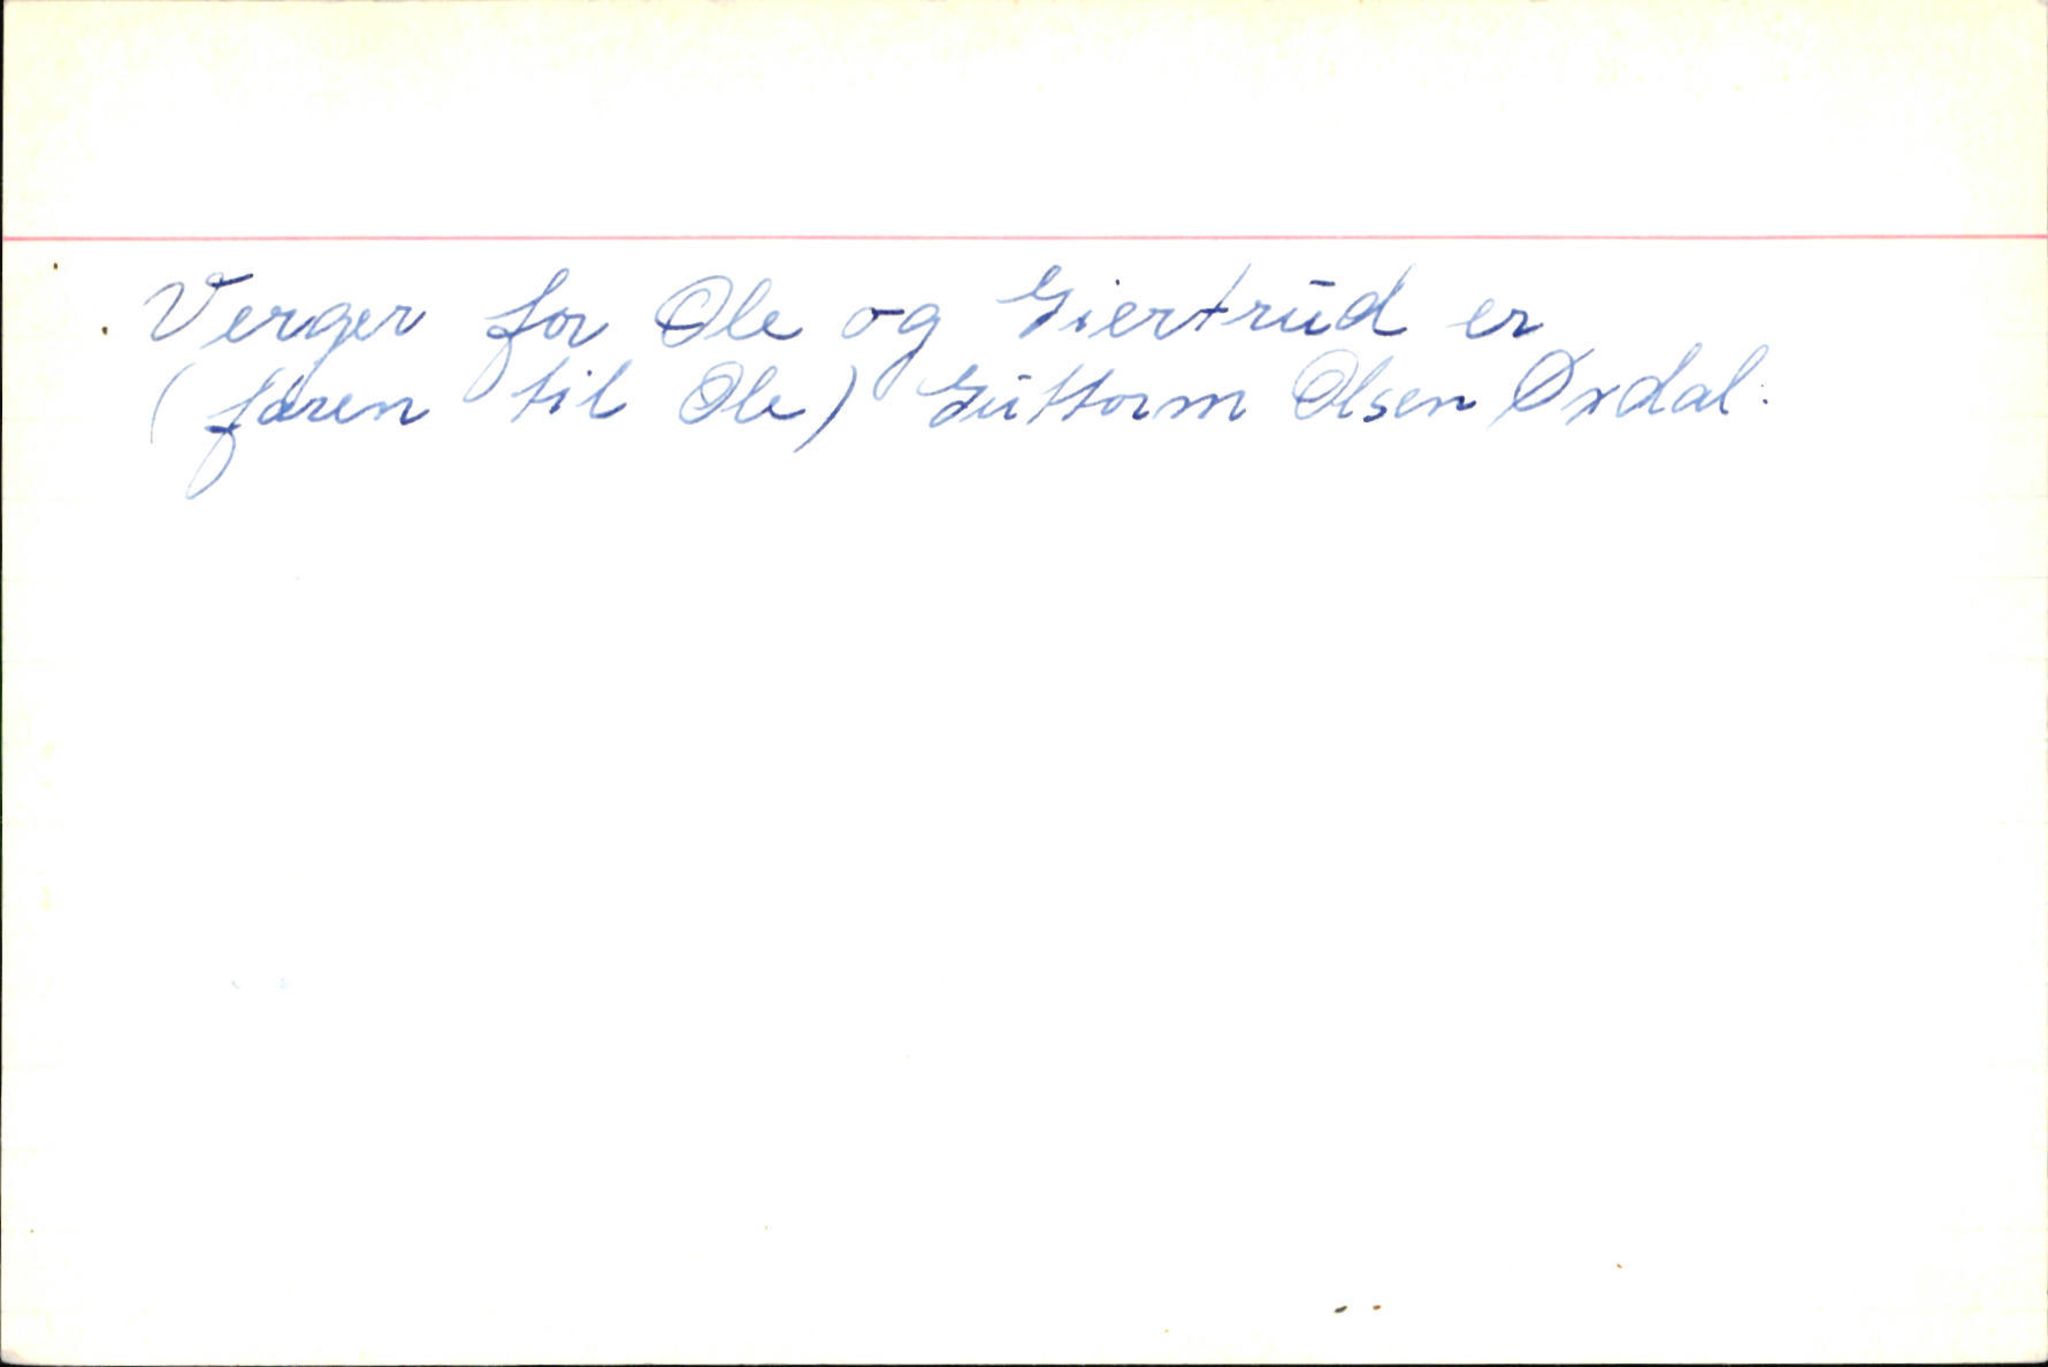 Verger for Ole og Giertrud er
(faren til Ole) Guttorm Olsen Øxdal.